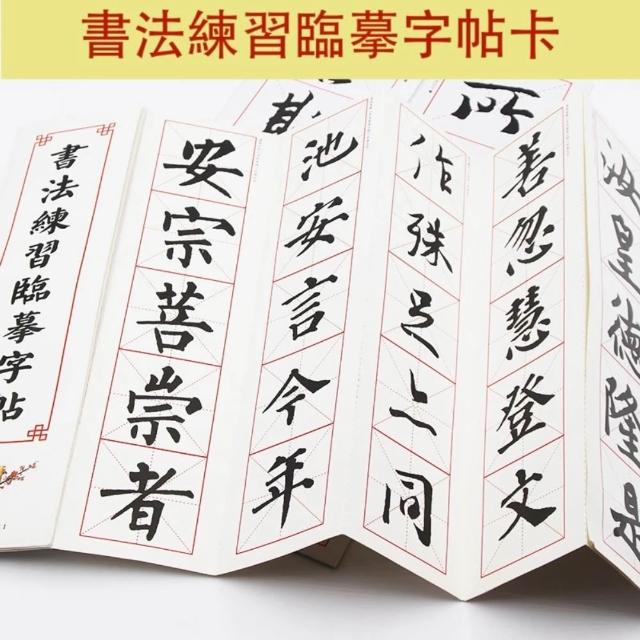 書法練習臨摹字帖卡
書法練習臨摹字帖
安宗菩崇者
池安言今年
作殊足上同
善忽慧登文
皇德隆是